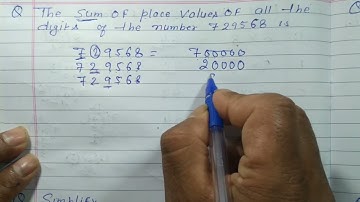 Q The Sum OF place Values OF all the
digits of the number 729568 is
729568 = 700000
729568 20000
729568
Q Simplify